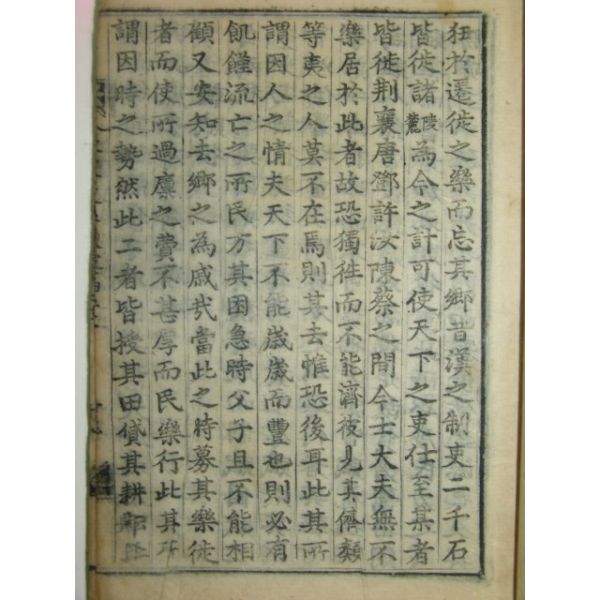 狂於遷徙之樂而忘其鄉昔漢之制吏二千石
皆徙諸陵麓為今之計可使天下之吏仕至某者
皆徙荆襄唐鄧許汝陳蔡之間今士大夫無不
樂居於此者故恐獨徃而不能濟彼見其儕類
等夷之人莫不在焉則其去惟恐後耳此其所
謂因人之情夫天下不能歲歲而豐也則必有
飢饉流亡之所民方其困急時父子且不能相
顧又安知去鄉之為戚哉當此之時募其樂徙
者而使所過廪之費不甚厚而民樂行此其所
謂因時之勢然此二者皆授其田貸其耕